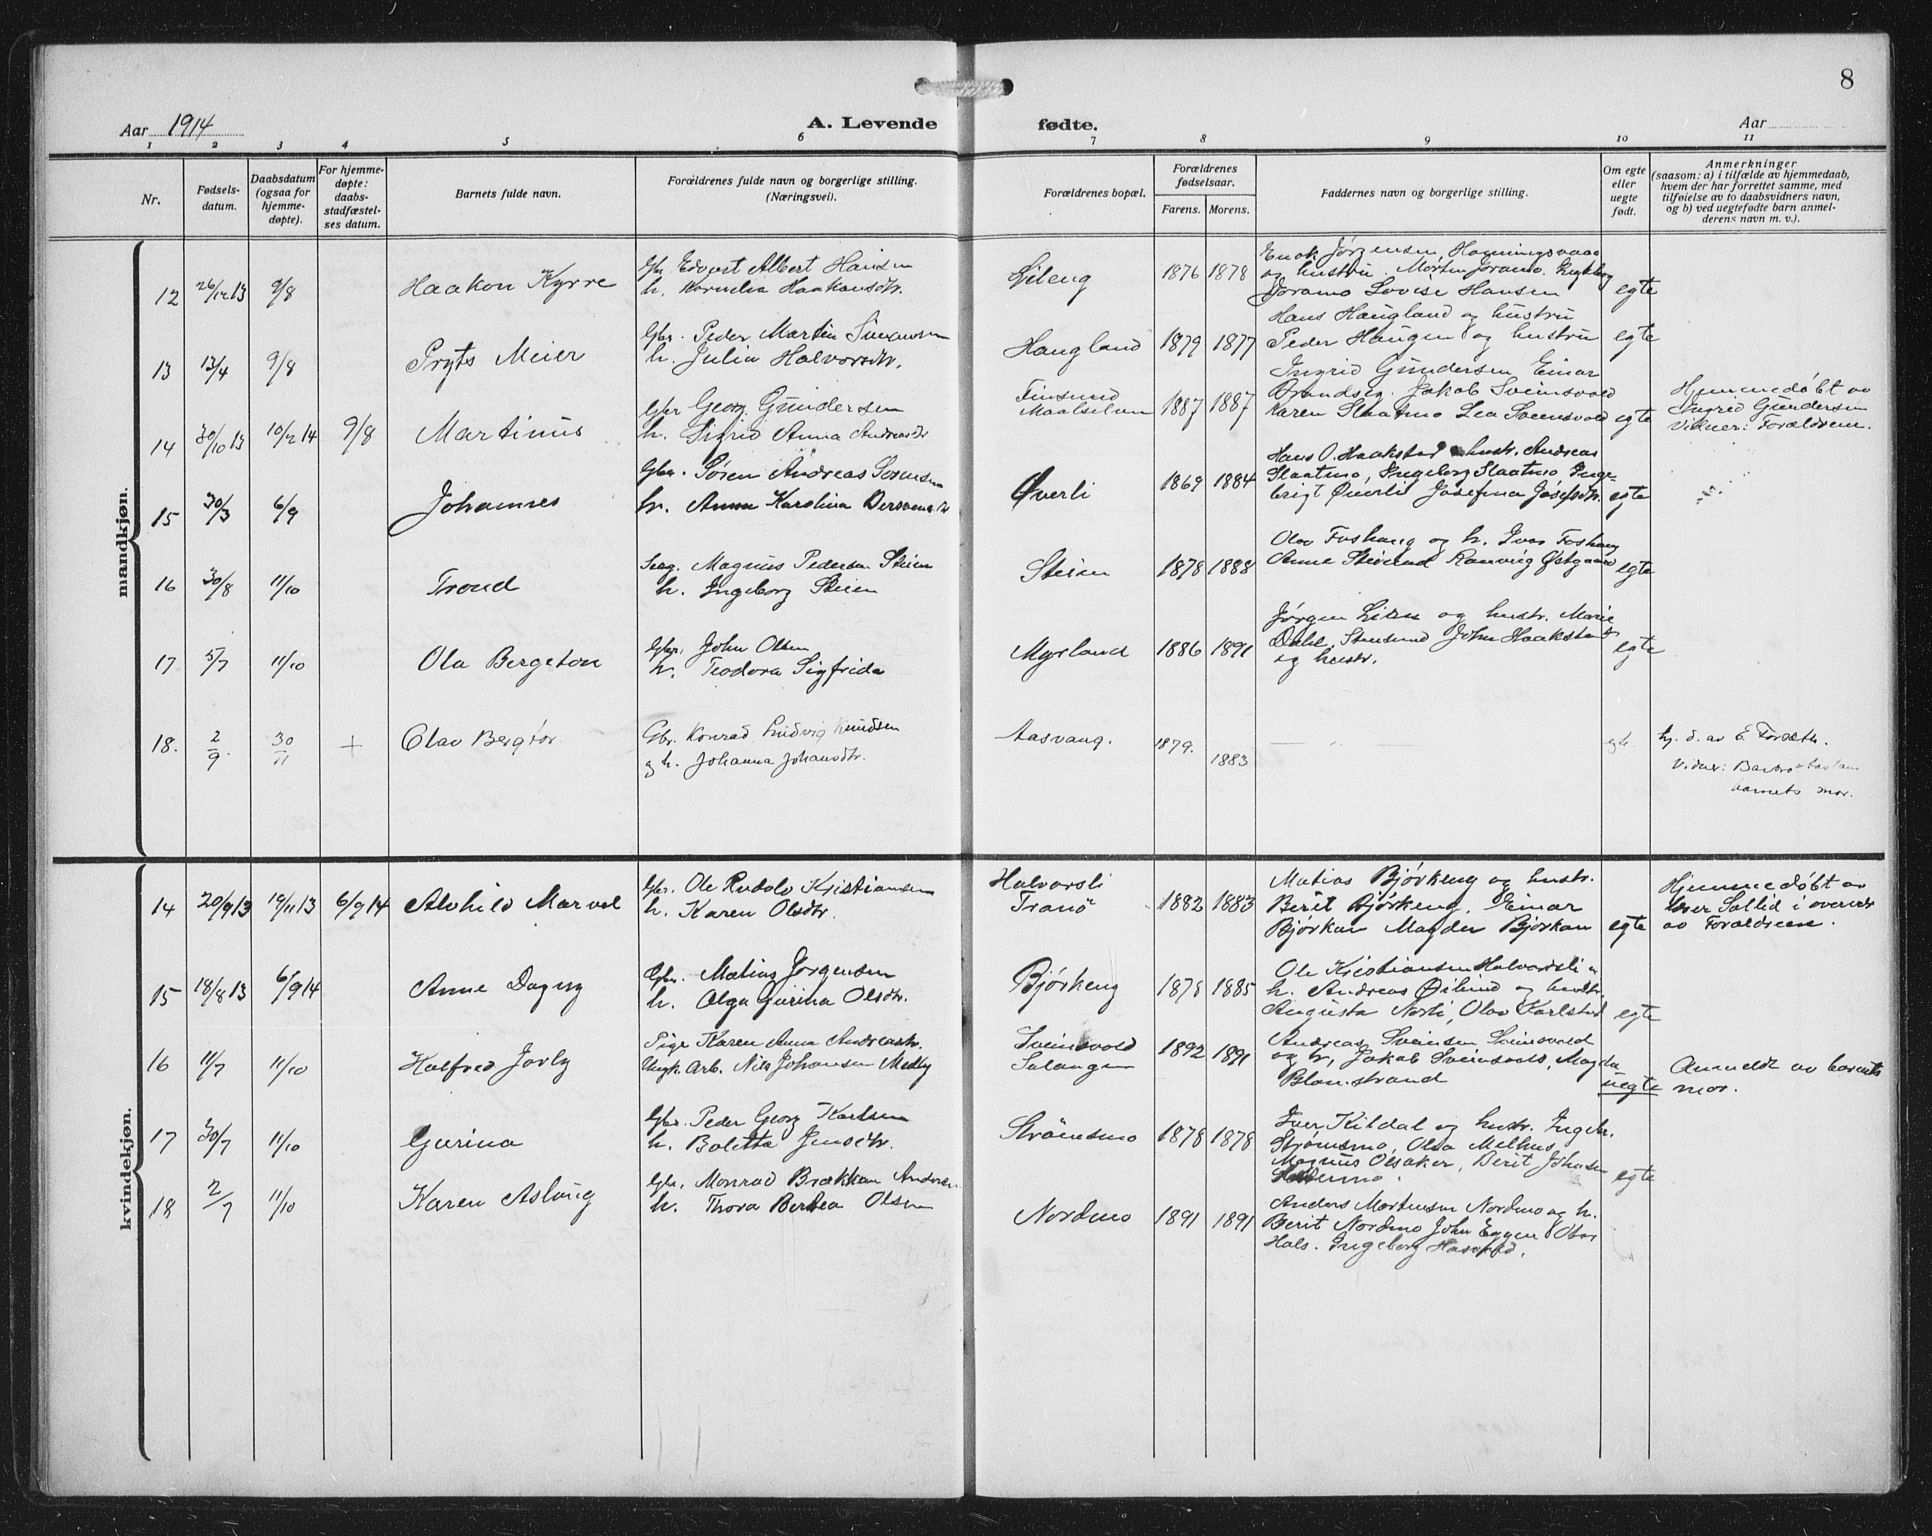 8
Aar 1914
A. Levende fødte.
Aar
1 2 3 4 5 6 7 8 9 10 11
Nr.
Fødsels-
datum.
Daabsdatum
(ogsaa for
hjemme-
døpte).
For hjemme-
døpte:
daabs-
stadfæstel-
ses datum.
Barnets fulde navn.
Forældrenes fulde navn og borgerlige stilling.
(Næringsvei).
Forældrenes bopæl.
Forældrenes
fødselsaar.
Farens. Morens.
Faddernes navn og borgerlige stilling.
Om egte
eller
uegte
født.
Anmerkninger
(saasom: a) i tilfælde av hjemmedaab,
hvem der har forrettet samme, med
tilføielse av to daabsvidners navn,
og b) ved uegtefødte barn anmel-
derens navn m. v.).
mandkjøn.
12 26/12 13 9/8 Haakon Kyrre
Gbr. Edvart Albert Hansen
h. Kornelia Haakansdtr.
Lileng 1876 1878
Enok Jørgensen, Honningsvaag
og hustru. Morten Joramo.
Joramo Lovise Hansen
egte
13 13/4 9/8 Pryts Meier
Gbr. Peder Martin Simensen
h. Julia Halvorsdtr.
Haugland 1879 1877
Hans Haugland og hustru
Peder Haugen og hustru
egte
14 30/10 13 10/2 14 9/8 Martinus
Gbr Georg Gundersen
h. Sigrid Anna Andreasdtr
Finsund
Maalselven 1887 1887
Ingrid Gundersen Einar
Brandseg. Jakob Sveinsvold
Karen Slaatmo Lea Sveinsvold
egte
Hjemmedøbt av
Ingrid Gundersen
Vidner: Forældrene.
15 30/3 6/9 Johannes
Gbr. Søren Andreas Sørensen
h. Anna Karolina
Øverli 1869 1884
Hans O. Haakstad hustr. Andreas
Slaatmo, Ingeborg Slaatmo Inge-
brigt Øverli Josefina Josefsdtr.
egte
16 30/8 11/10 Trond
Magnus Pedersen Steien
h. Ingeborg Steien
Steien 1878 1888
Olav Foshaug og h. Ivar Foshaug
Anne Steilend Ranveig Østgaard
egte
17 5/7 11/10 Ola Bergeton
Gbr. John Olsen
h. Teodora Sigfrida
Myrland 1886 1891
Jørgen Lien og hustr. Marie
Dahl, Stensund John Haakstad
og hustr.
egte
18. 2/9. 30/11 + Olav Bergtor
Gbr. Konrad Ludvig Knudsen
og h. Johanna Johansdtr.
Aasvang. 1879. 1883
— — —
egte
hj. d. av E. Forseth.
Vidner: Barbro
barnets mor.
kvindekjøn.
14 20/9 13 19/11 13 6/9 14 Alvhild Marvel
Gbr. Ole Rudolv Kristiansen
h. Karen Olsdtr.
Halvorsli
Tranø 1882 1883
Matias Bjørkeng og hustr.
Berit Bjørkeng, Einar
Bjørkan Magder Bjørkan
egte
Hjemmedøbt av
Iver Sollid i overvær
av Forældrene.
15 18/8 13 6/9 14 Anne Dagny
Gbr. Matias Jørgensen
h. Olga Gurina Olsdtr.
Bjørkeng 1878 1885
Ole Kristiansen Halvorsli og
h. Andreas Øilund og hustr.
Augusta Norli, Olav Karlstad
egte
16 11/7 11/10 Halfred Jovly
Pige Karen Anna Andreasdtr.
Ungk. Arb. Nils Johansen Medby
Sveinsvold
Salangen 1892 1891
Andreas Sveinsen Sveinsvold
og h, Jakob Sveinsvold, Magda
Blomstrand
uegte
Anmeldt av barnets
mor.
17 30/7 11/10 Gurina
Gbr. Peder Georg Karlsen
h. Boletta Jensdtr.
Strømsmo 1878 1878
Iver Kildal og hustr. Ingebr.
Strømsmo, Olsa Melhus,
Magnus Olsaker, Berit Johnsen
egte
18 2/7 11/10 Karen Aslaug
Gbr. Monrad Brækkan Andersen
h. Thora Bertea Olsen
Nordmo 1891 1891
Anders Mortensen Nordmo og h.
Berit Nordmo John Eggen Olav
Hals. Ingeborg